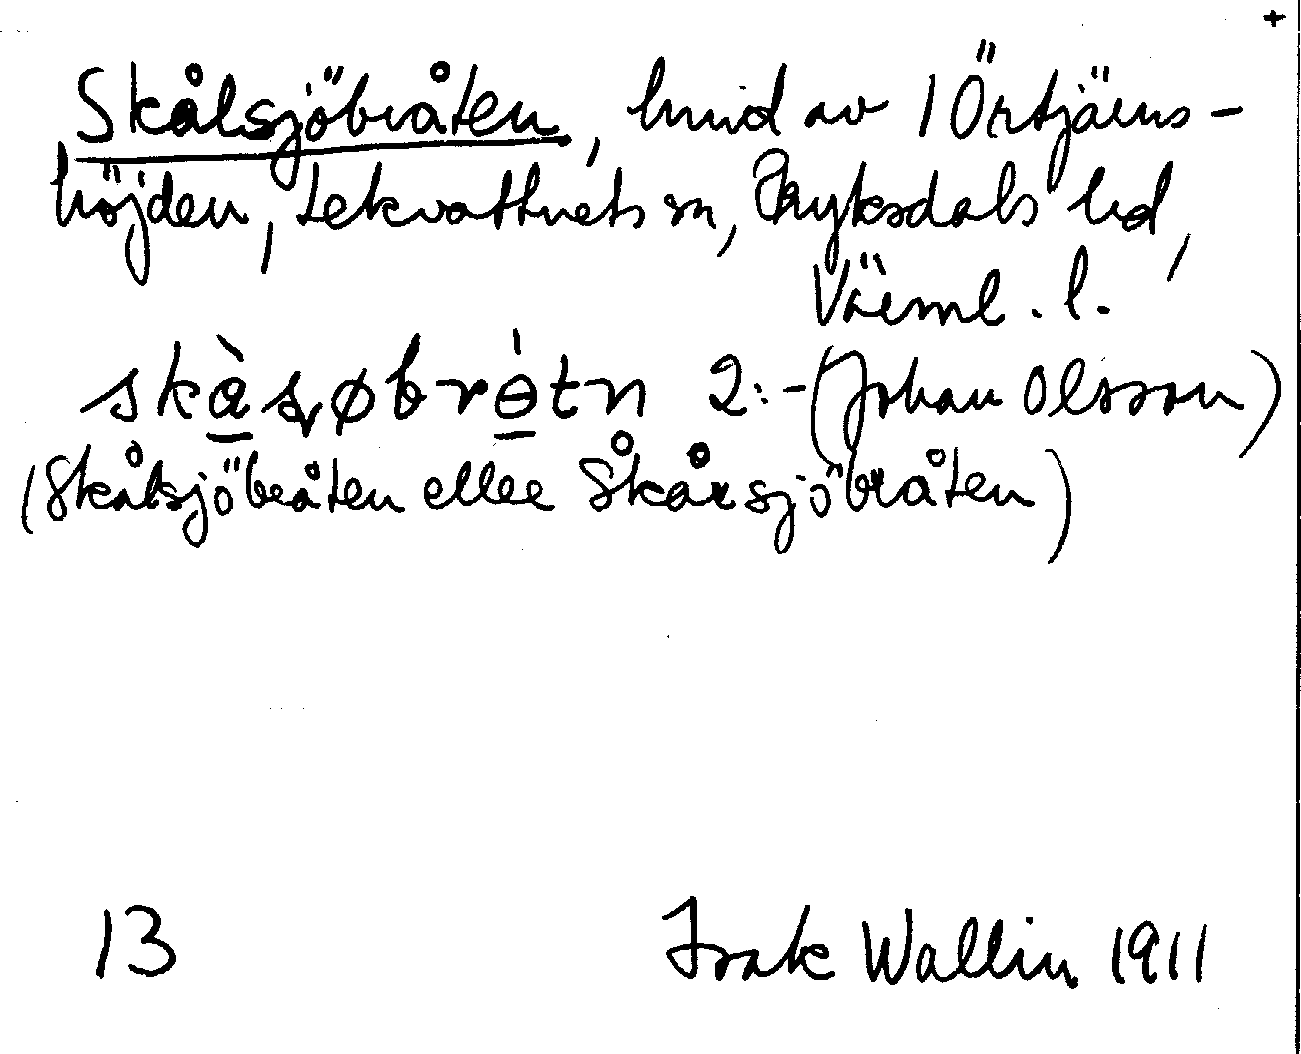 +
Skålsjöbråten, hmd av 1 Örtjärns-
höjden, Lekvattnets sn, Fryksdals hd,
Värml. l.
skὰ̱sꭍøbrɵ̱́tn 2:-(Johan Olsson)
(Skålsjöbråten eller Skårsjöbråten)
13 Isak Wallin 1911